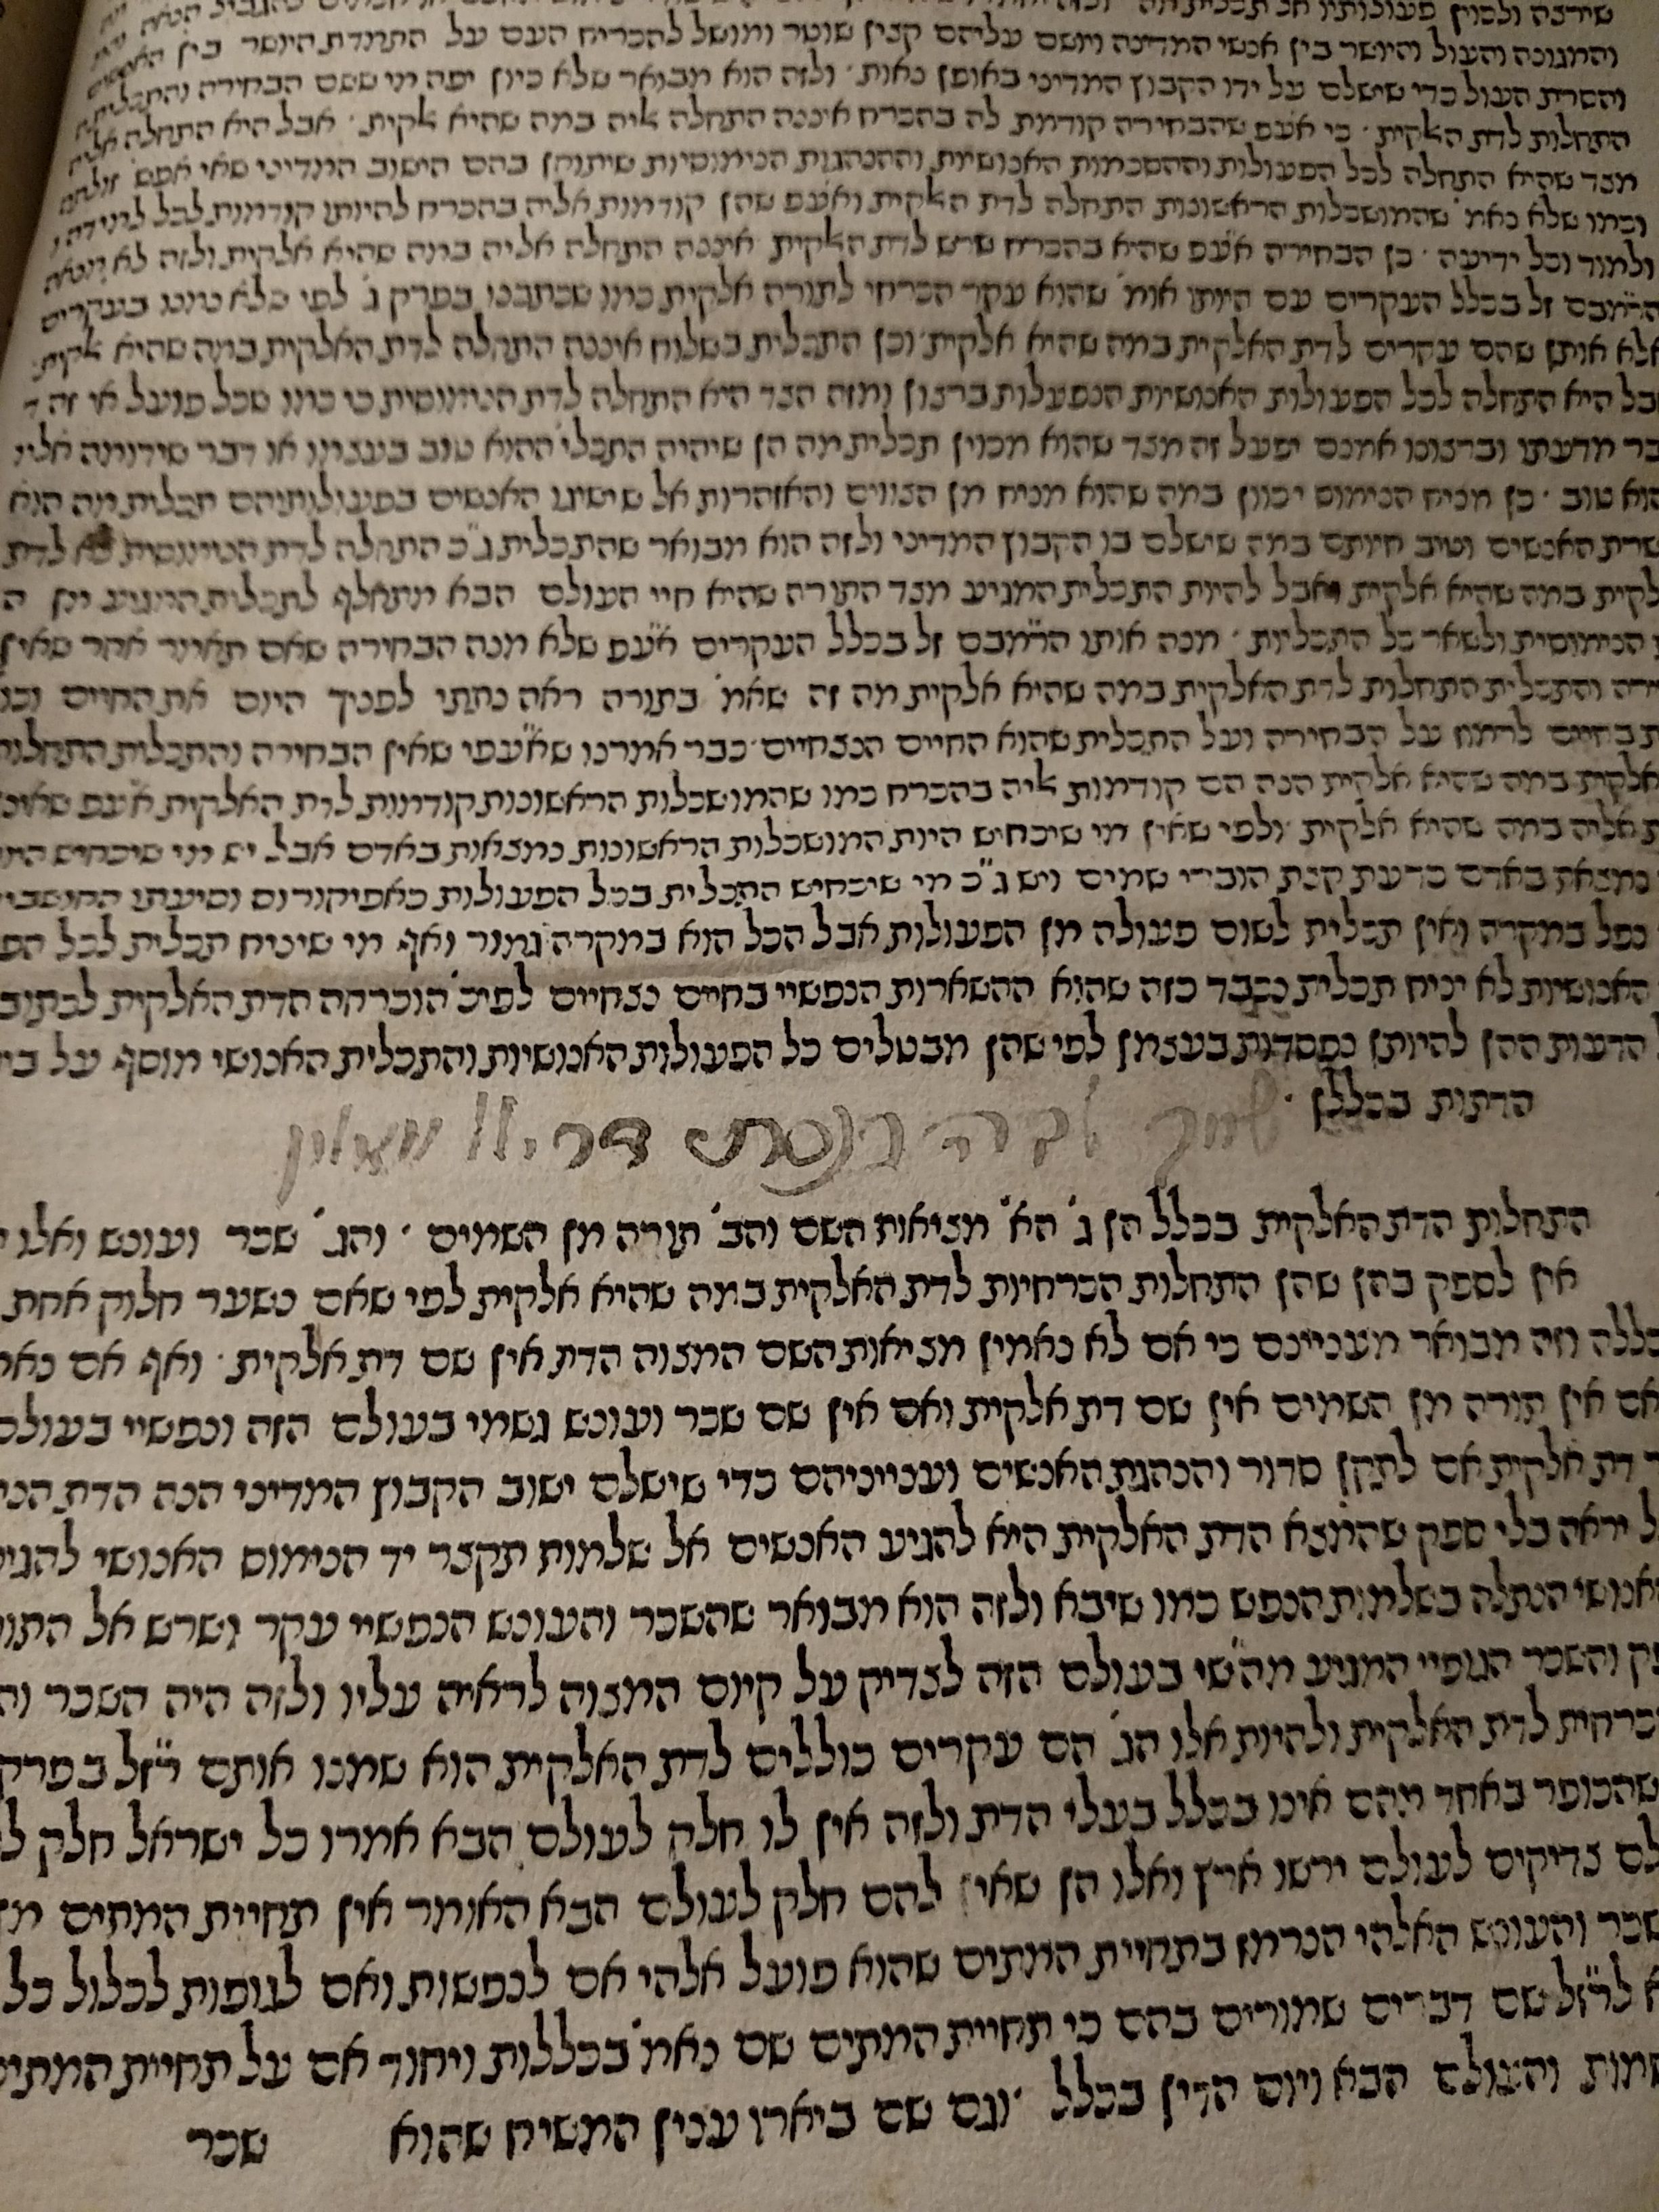 שירצה ולכוין פעולותיו
והמגונה והעול והיושר בין אנשי המדינה ויושם עליהם קצין שוטר ומושל להכריח העם על התמדת היושר בין
והסרת העול כדי שישלם על ידו הקבוץ המדיני באופן נאות ולזה הוא מבואר שלא כיון יפה מי ששם הבחירה והתכלית
התחלות לדת האלקית כי אע״פ שהבחירה קודמת לה בהכרח איננה התחלה אליה במה שהיא אלקית אבל היא התחלה אליה
מצד שהיא התחלה לכל הפעולות וההסכמות האנושיות וההנהגות הנימוסיות שיתוקן בהם הישוב המדיני שאי אפש׳ זולתם
וכמו שלא נאמ׳ שהמושכלות הראשונות התחלה לדת האלקית ואע״פ שהן קודמות אליה בהכרח להיותן קודמות לכל
ולמוד וכל ידיעה כן הבחירה אע״פ שהיא בהכרח שרש לדת האלקית איננה התחלה אליה במה שהיא אלקית ולזה לא
הר״מבם ז״ל בכלל העקרים עם היותו אומ׳ שהוא עקר הכרחי לתורה אלקית כמו שכתבנו בפרק ג׳ לפי שלא מנינו בעקרים
אלא אותן שהם עקרים לדת האלקית במה שהיא אלקית וכן התכלית בשלוח איננה התחלה לדת האלקית במה שהיא אלקית
בל היא התחלה לכל הפעולות האנושיות הנפעלות ברצון ומזה הצד היא התחלה לדת הנימוסית כי כמו שכל פועל אי זה ד
בר מדעתו וברצונו אמנם יפעל זה מצד שהוא מכוין תכלית מה הן שיהיה התכלי׳ ההוא טוב בעצמו או דבר שידומה אליו
הוא טוב כן מניח הנימוס יכוון במה שהוא מניח מן הצווים והאזהרות אל שישיגו האנשים בפעולותיהם תכלית מה הוא
שרת האנשים וטוב חיותם במה שישלם בו הקבוץ המדיני ולזה הוא מבואר שהתכלית ג״כ התחלה לדת הנימוסית לא לדת
לקית במה שהיא אלקית אבל להיות התכלית המגיע מצד התורה שהיא חיי העולם הבא מתחלף לתכלית המגיע מן ה
הנימוסית ולשאר כל התכליות מנה אותו הר״מבם ז״ל בכלל העקרים אע״פ שלא מנה הבחירה שאם תאמר אחר שאין
ירה והתכלית התחלות לדת האלקית במה שהיא אלקית מה זה שאמ׳ בתורה ראה נתתי לפניך היום את החיים וכו
ת בחיים לרמוז על הבחירה ועל התכלית שהוא החיים הנצחיים כבר אמרנו שאע״פי שאין הבחירה והתכלית התחלות
אלקית במה שהיא אלקית הנה הם קודמות אליה בהכרח כמו שהמושכלות הראשונות קודמות לדת האלקית אע״פ שאינ
ת אליה במה שהיא אלקית ולפי שאין מי שיכחיש היות המושכלות הראשונות נמצאות באדם אבל יש מי שיכחיש
נמצאת באדם כדעת קצת הוברי שמים ויש ג״כ מי שיכחיש התכלית בכל הפעולות כאפיקורוס וסיעתו החושבי
נפל במקרה ואין תכלית לשום פעולה מן הפעולות אבל הכל הוא במקרה גמור ואף מי שיניח תכלית לכל הפ
האנושיות לא יניח תכלית נכבד כזה שהוא ההשארות הנפשיי בחיים נצחיים לפיכ׳ הוכרחה הדת האלקית לכתוב
הדעות ההן להיותן נפסדות בעצמן לפי שהן מבטלים כל הפעולות האנושיות והתכלית האנושי מוסף על בי
הדתות בכללן
התחלות הדת האלקית בכלל הן ג׳ הא׳ מציאות השם והב׳ תורה מן השמים והג׳ שכר ועונש ואלו
אין לספק בהן שהן התחלות הכרחיות לדת האלקית במה שהיא אלקית לפי שאם נשער חלוק אחת
כללה וזה מבואר מענינם כי אם לא נאמין מציאות השם המצוה הדת אין שם דת אלקית ואף אם נאמ
אם אין תורה מן השמים אין שם דת אלקית ואם אין שם שכר ועונש גשמי בעולם הזה ונפשיי בעולם
דת אלקית אם לתקן סדור והנהגת האנשים ועניניהם כדי שישלם ישוב הקבוץ המדיני הנה הדת הני
ל יראה בלי ספק שהמצא הדת האלקית היא להגיע האנשים אל שלמות תקצר יד הנימוס האנושי להגי
אנושי הנתלה בשלמות הנפש כמו שיבא ולזה הוא מבואר שהשכר והעונש הנפשיי עקר ושרש אל התו
פק והשכר הגופיי המגיע מהש״י בעולם הזה לצדיק על קיום המצוה לראיה עליו ולזה היה השכר וה
כרחית לדת האלקית ולהיות אלו הג׳ הם עקרים כוללים לדת האלקית הוא שמנו אותם ר״זל בפרק
שהכופר באחד מהם אינו בכלל בעלי הדת ולזה אין לו חלק לעולם הבא אמרו כל ישראל חלק ל
לם צדיקים לעולם ירשו ארץ ואלו הן שאין להם חלק לעולם הבא האומר אין תחיית המתים מ
שכר והעונש האלהי הנרמז בתחיית המתים שהוא פועל אלהי אם לנפשות ואם לגופות לכלול כל
א לר״זל שם דברים שמורים בהם כי תחיית המתים שם נאמ׳ בכללות ויחוד אם על תחיית המתים
שמות והעולם הבא ויום הדין בכלל וגם שם ביארו ענין המשיח שהוא שכר